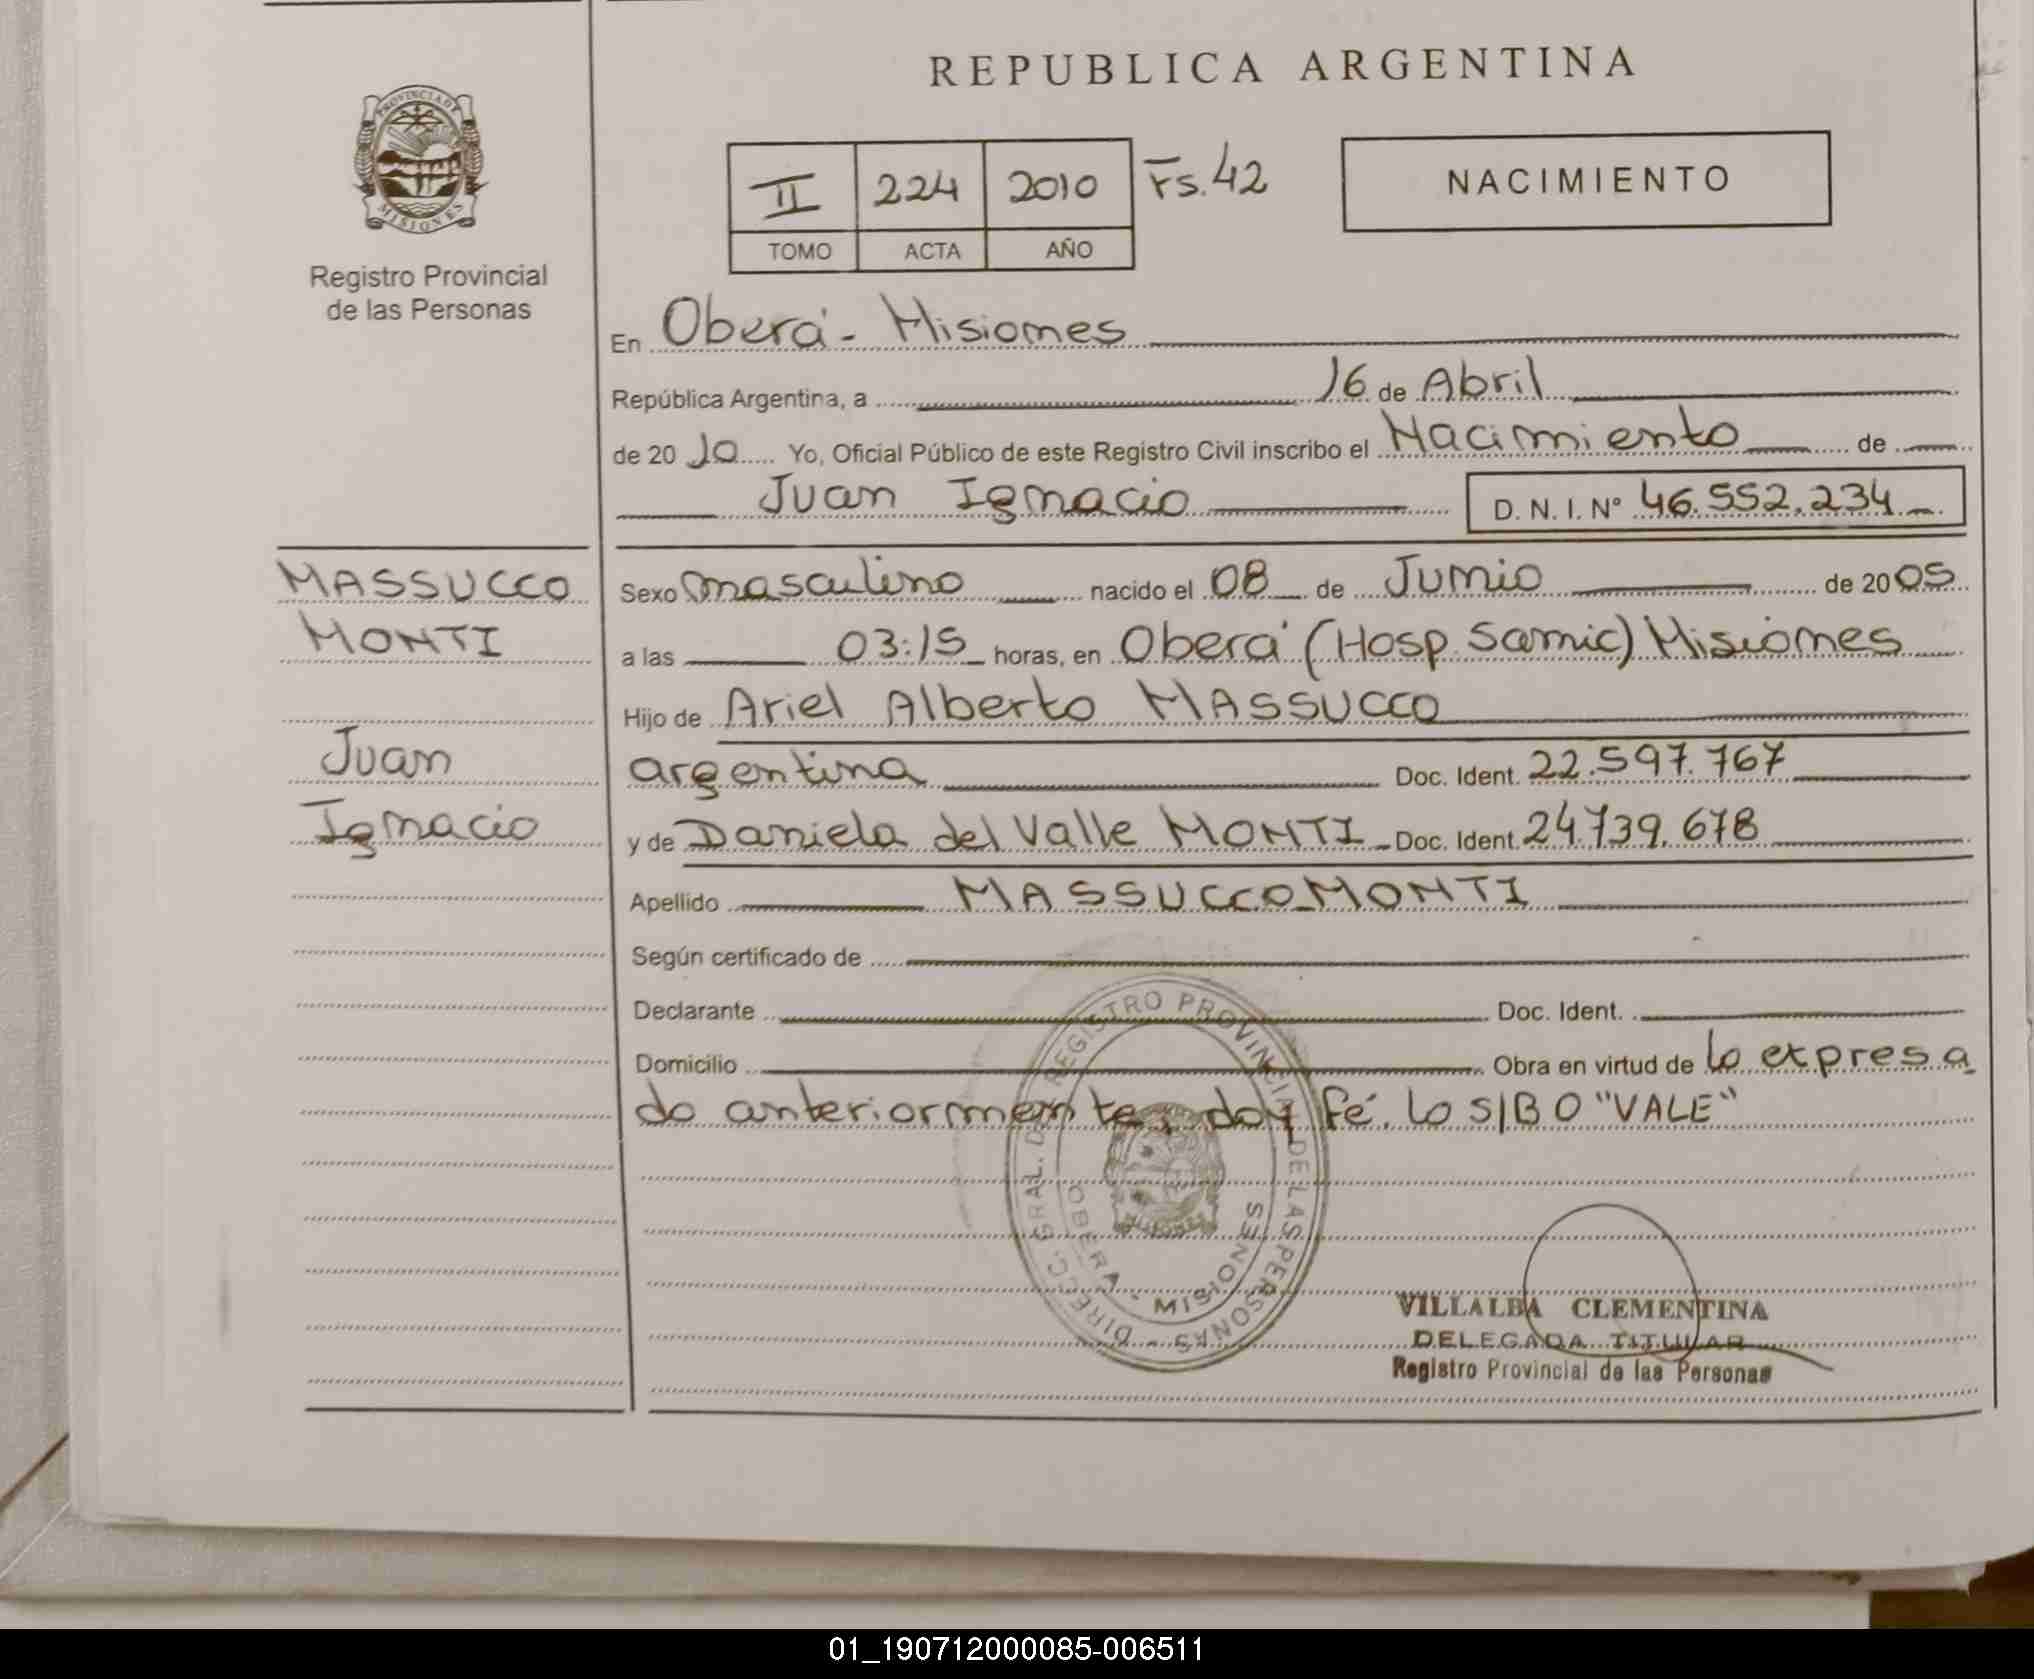 REPUBLICA ARGENTINA
PROVINCIA D
MISIONES
Registro Provincial
de las Personas
II 224 2010 Fs.42
TOMO ACTA AÑO
NACIMIENTO
En Oberá - Misiones
República Argentina, a 16 de Abril
de 20 10 Yo, Oficial Público de este Registro Civil inscribo el Nacimiento de
Juan Ignacio D. N. I. Nº 46.552.234
MASSUCCO
MONTI
Juan
Ignacio
Sexo masculino nacido el 08 de Junio de 20 05
a las 03:15 horas, en Oberá (Hosp. Samic) Misiones
Hijo de Ariel Alberto MASSUCCO
argentina Doc. Ident. 22.597.767
y de Daniela del Valle MONTI Doc. Ident. 24.739.678
Apellido MASSUCCO MONTI
Según certificado de
Declarante Doc. Ident.
Domicilio Obra en virtud de lo expresa
do anteriormente, doy fé. lo S/B O "VALE"
DIRECC. GRAL. DEL REGISTRO PROVINCIAL DE LAS PERSONAS -
OBERA - MISIONES
VILLALBA CLEMENTINA
DELEGADA TITULAR
Registro Provincial de las Personas
01_190712000085-006511